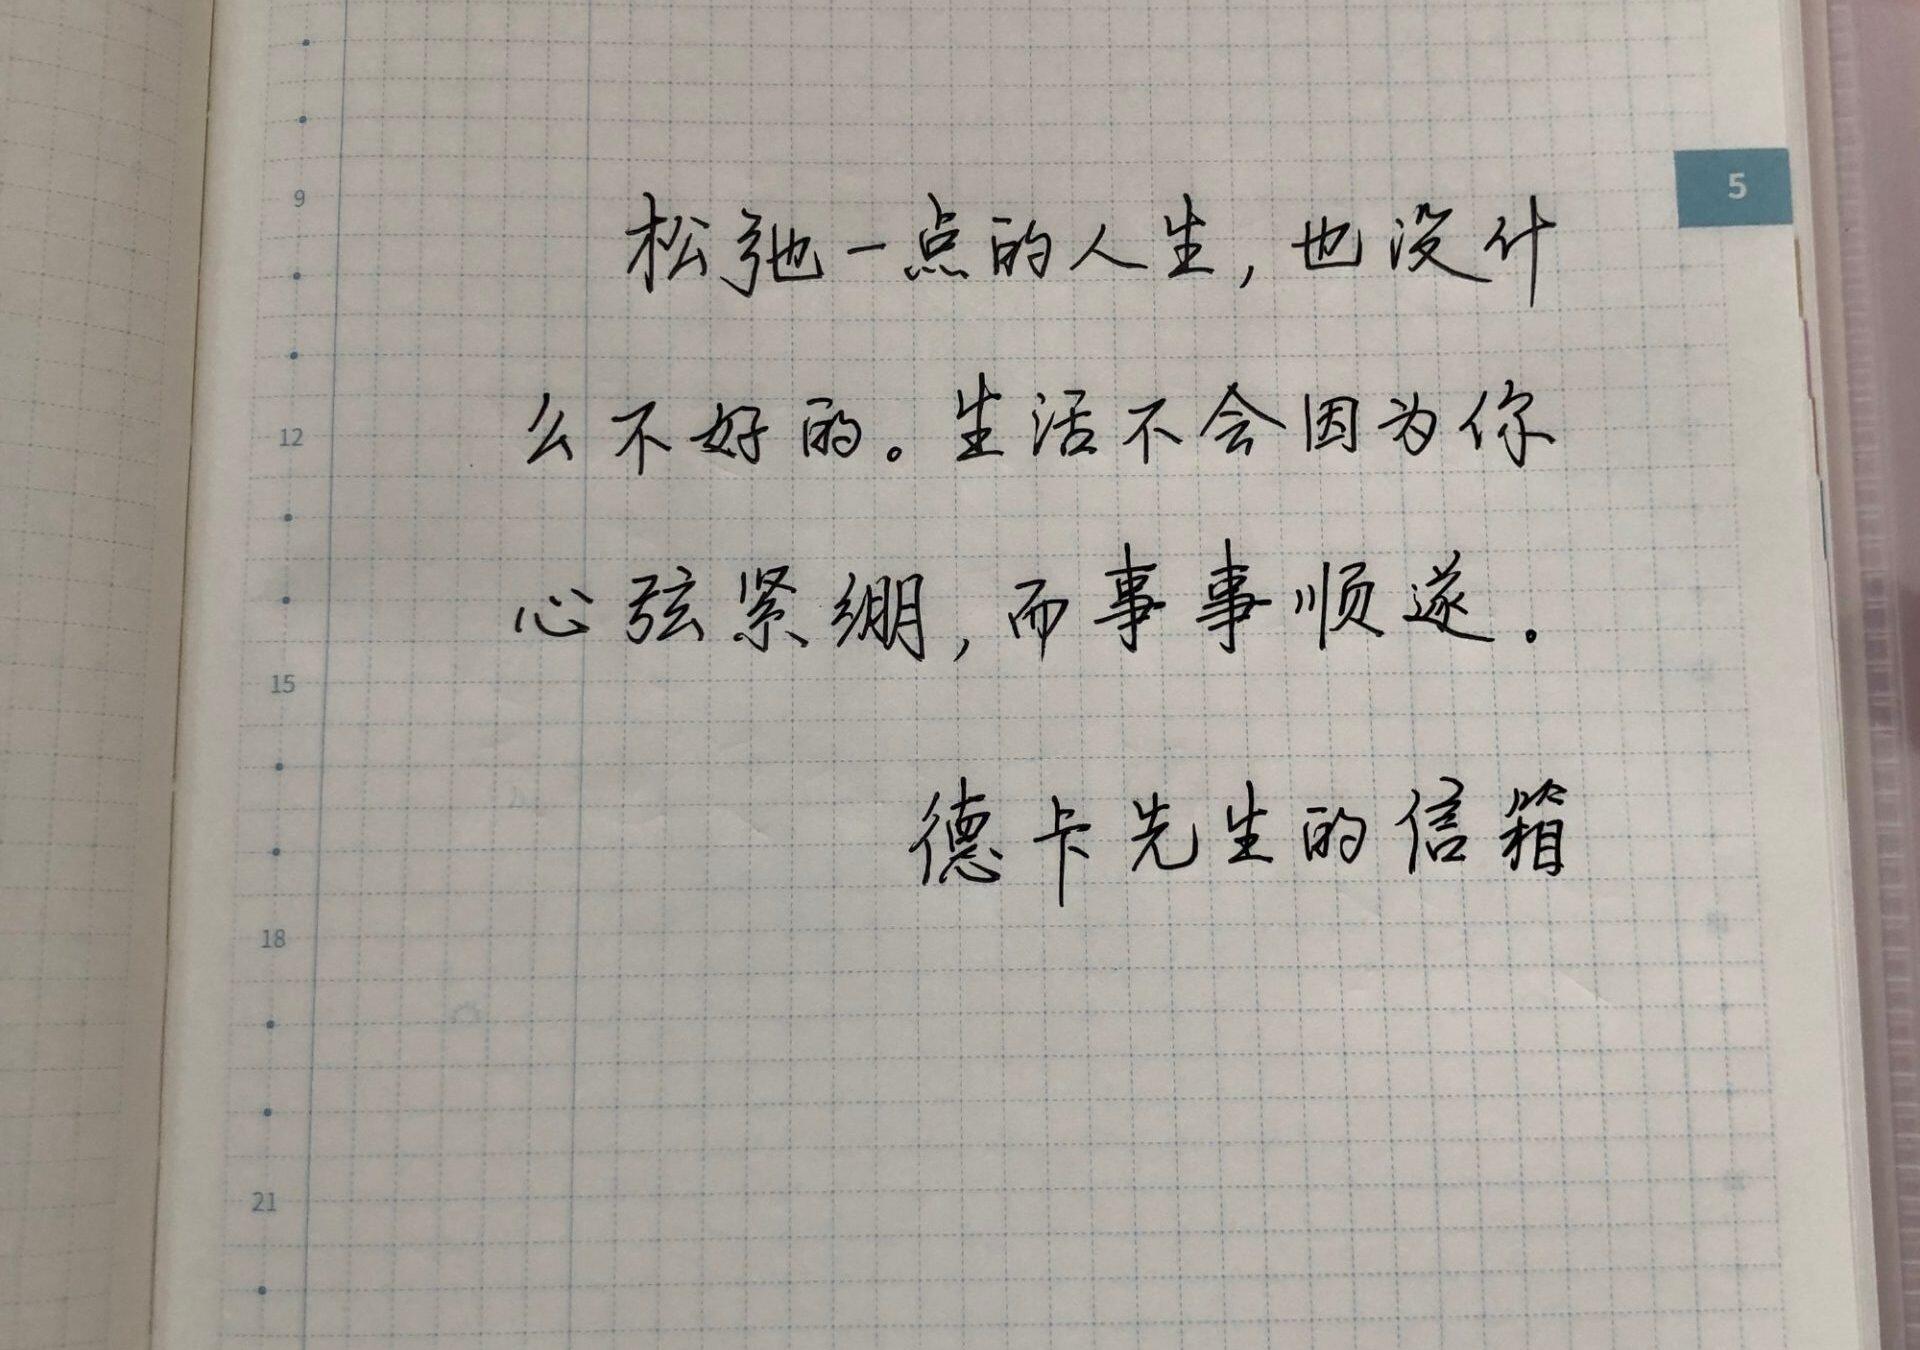 5
9
松弛一点的人生，也没什
12
么不好的。生活不会因为你
心弦紧绷，而事事顺遂.
15
德卡先生的信箱
18
21